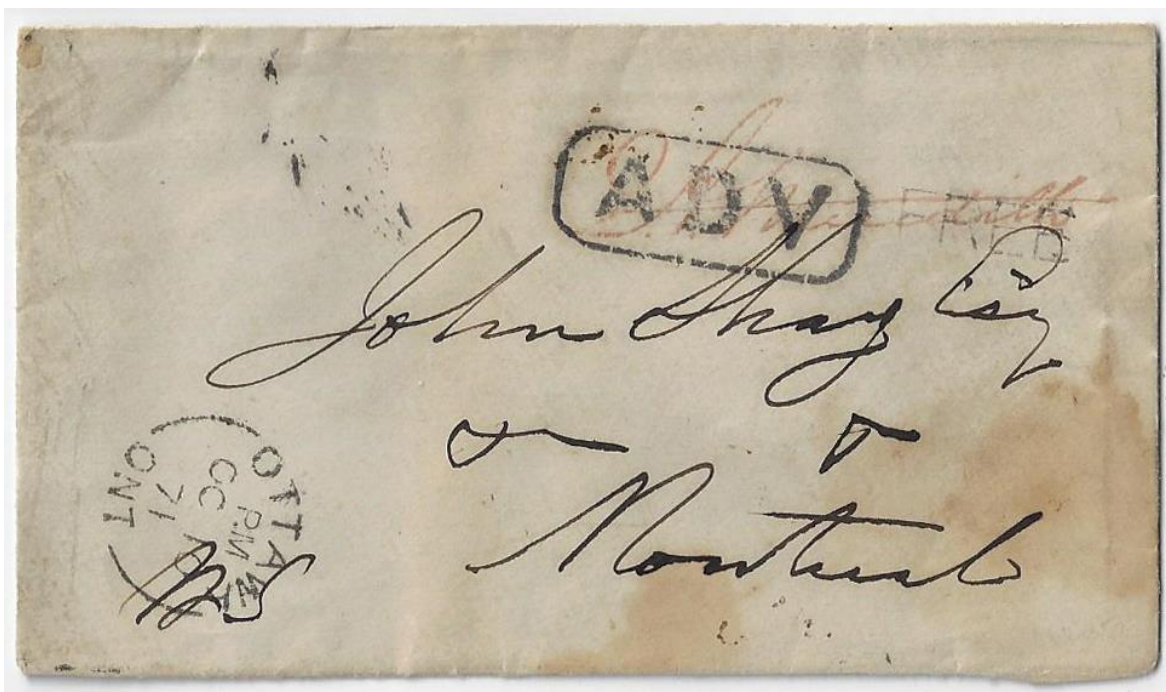 ADV
FREE
John Shay Esq
Montreal
OTTAWA
ONT
PM
OC
71